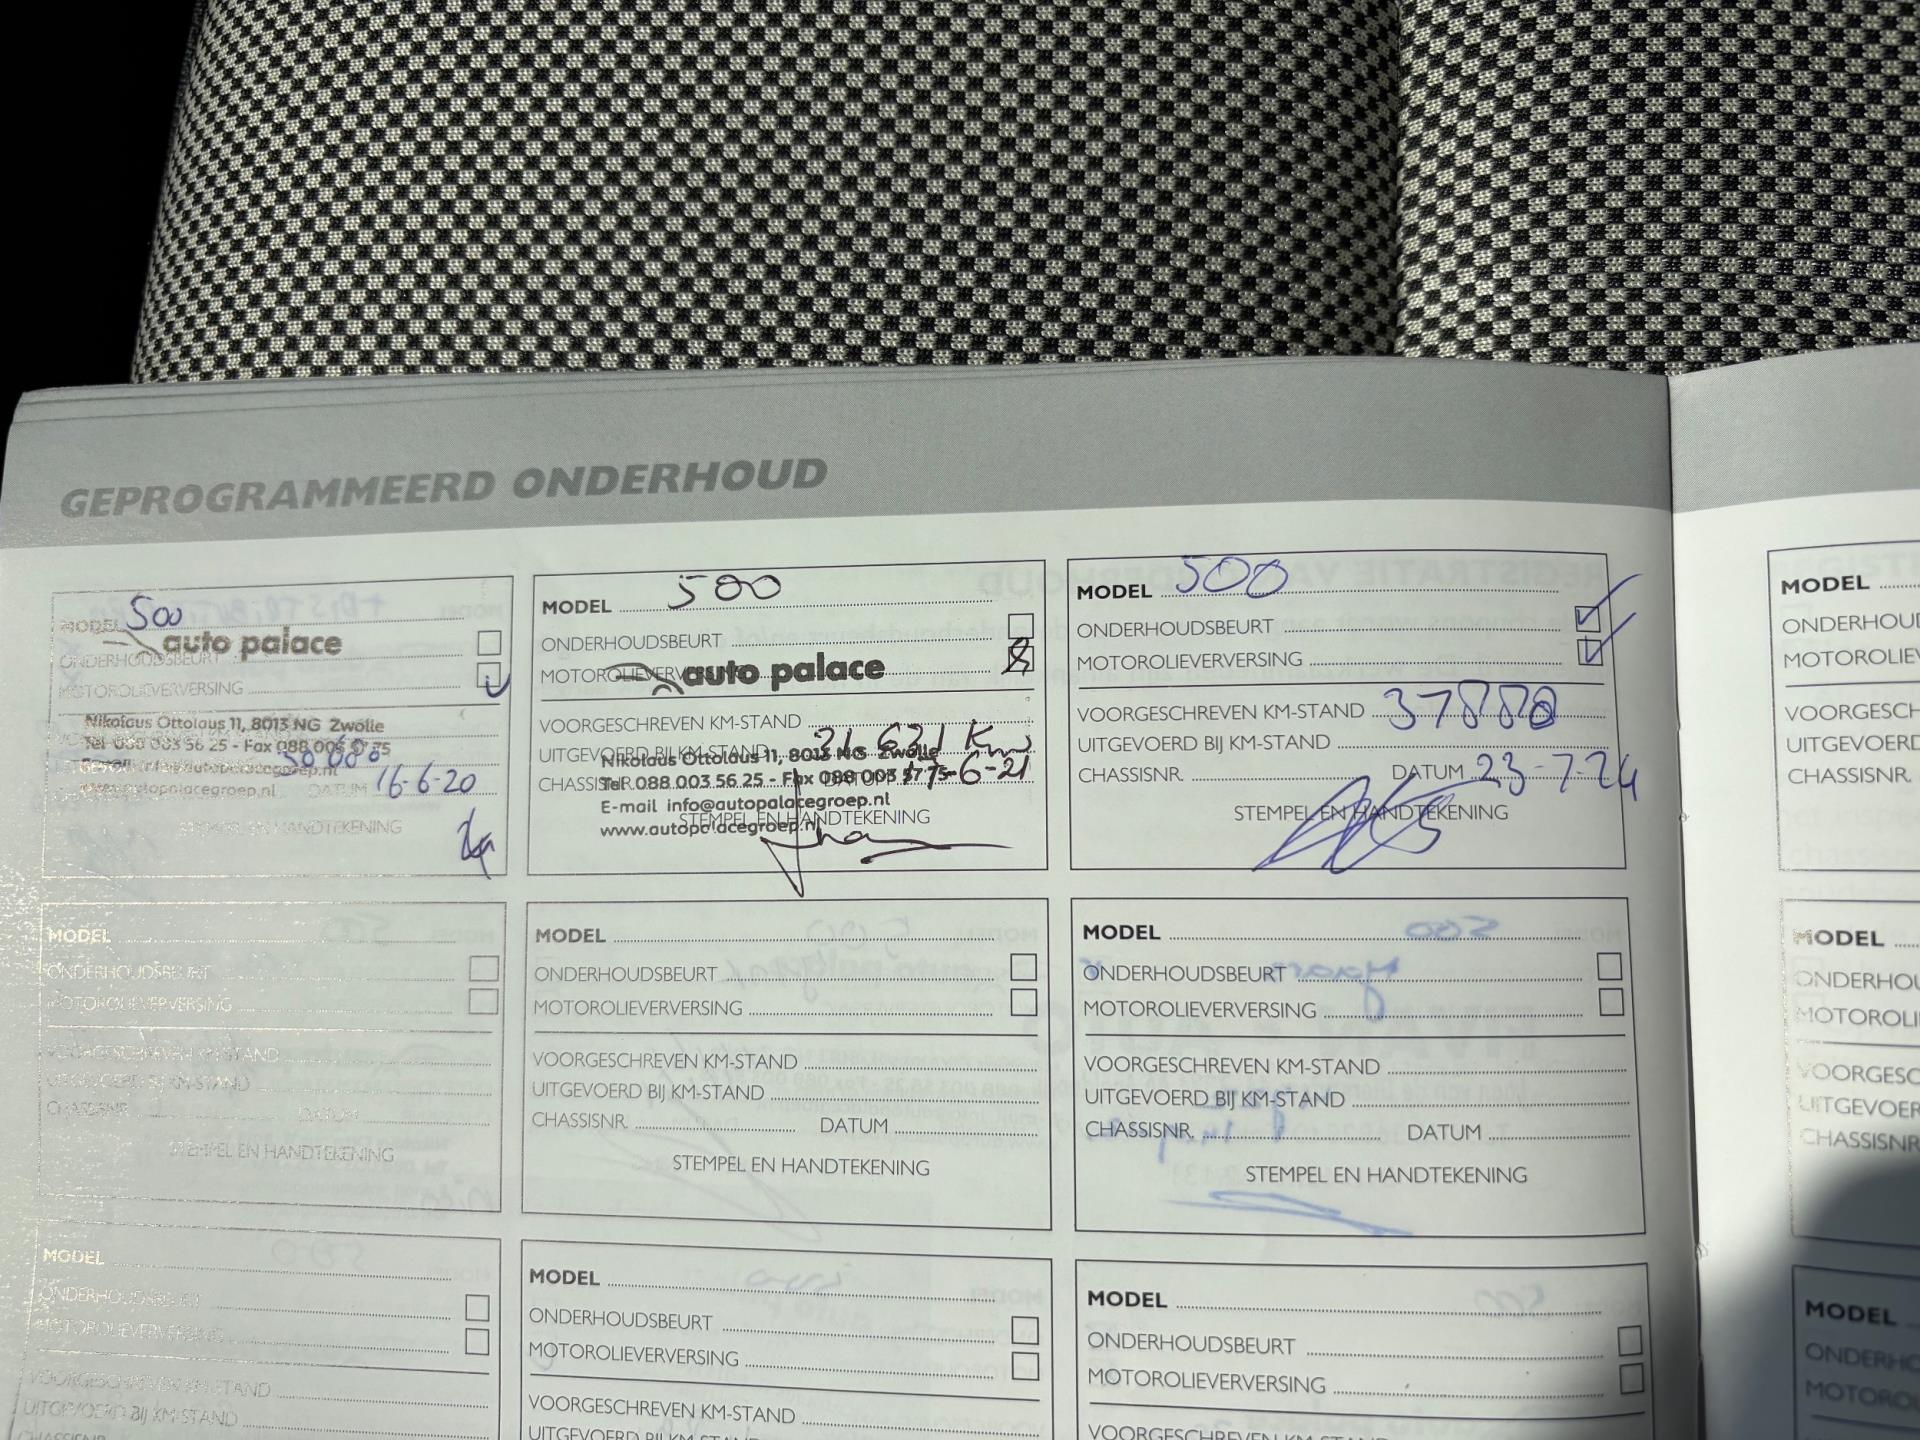 GEPROGRAMMEERD ONDERHOUD
MODEL 500
auto palace
ONDERHOUDSBEURT
MOTOROLIEVERVERSING
Nikolaus Ottolaus 11, 8013 NG Zwolle
Tel 088 003 56 25 - Fax 088 003 57 75
DATUM 16-6-20
STEMPEL EN HANDTEKENING
MODEL 500
ONDERHOUDSBEURT
MOTOROLIEVERVERSING
auto palace
VOORGESCHREVEN KM-STAND
UITGEVOERD BIJ KM-STAND
Nikolaus Ottolaus 11, 8013 NG Zwolle
CHASSISNR. DATUM
Tel 088 003 56 25 - Fax 088 003 57 75
E-mail info@autopalacegroep.nl
STEMPEL EN HANDTEKENING
www.autopalacegroep.nl
MODEL 500
ONDERHOUDSBEURT
MOTOROLIEVERVERSING
VOORGESCHREVEN KM-STAND
UITGEVOERD BIJ KM-STAND
CHASSISNR. DATUM 23-7-24
STEMPEL EN HANDTEKENING
MODEL
ONDERHOUD
MOTOROLIEVE
VOORGESCH
UITGEVOERD
CHASSISNR.
MODEL
ONDERHOUDSBEURT
MOTOROLIEVERVERSING
VOORGESCHREVEN KM-STAND
UITGEVOERD BIJ KM-STAND
CHASSISNR. DATUM
STEMPEL EN HANDTEKENING
MODEL
ONDERHOUDSBEURT
MOTOROLIEVERVERSING
VOORGESCHREVEN KM-STAND
UITGEVOERD BIJ KM-STAND
CHASSISNR. DATUM
STEMPEL EN HANDTEKENING
MODEL
ONDERHOUDSBEURT
MOTOROLIEVERVERSING
VOORGESCHREVEN KM-STAND
UITGEVOERD BIJ KM-STAND
CHASSISNR. DATUM
STEMPEL EN HANDTEKENING
MODEL
ONDERHOU
MOTOROLI
VOORGESC
UITGEVOER
CHASSISNR
MODEL
ONDERHOUDSBEURT
MOTOROLIEVERVERSING
VOORGESCHREVEN KM-STAND
UITGEVOERD BIJ KM-STAND
CHASSISNR.
MODEL
ONDERHOUDSBEURT
MOTOROLIEVERVERSING
VOORGESCHREVEN KM-STAND
UITGEVOERD BIJ KM-STAND
MODEL
ONDERHOUDSBEURT
MOTOROLIEVERVERSING
VOORGESCHREVEN KM-STAND
MODEL
ONDERHO
MOTOROL